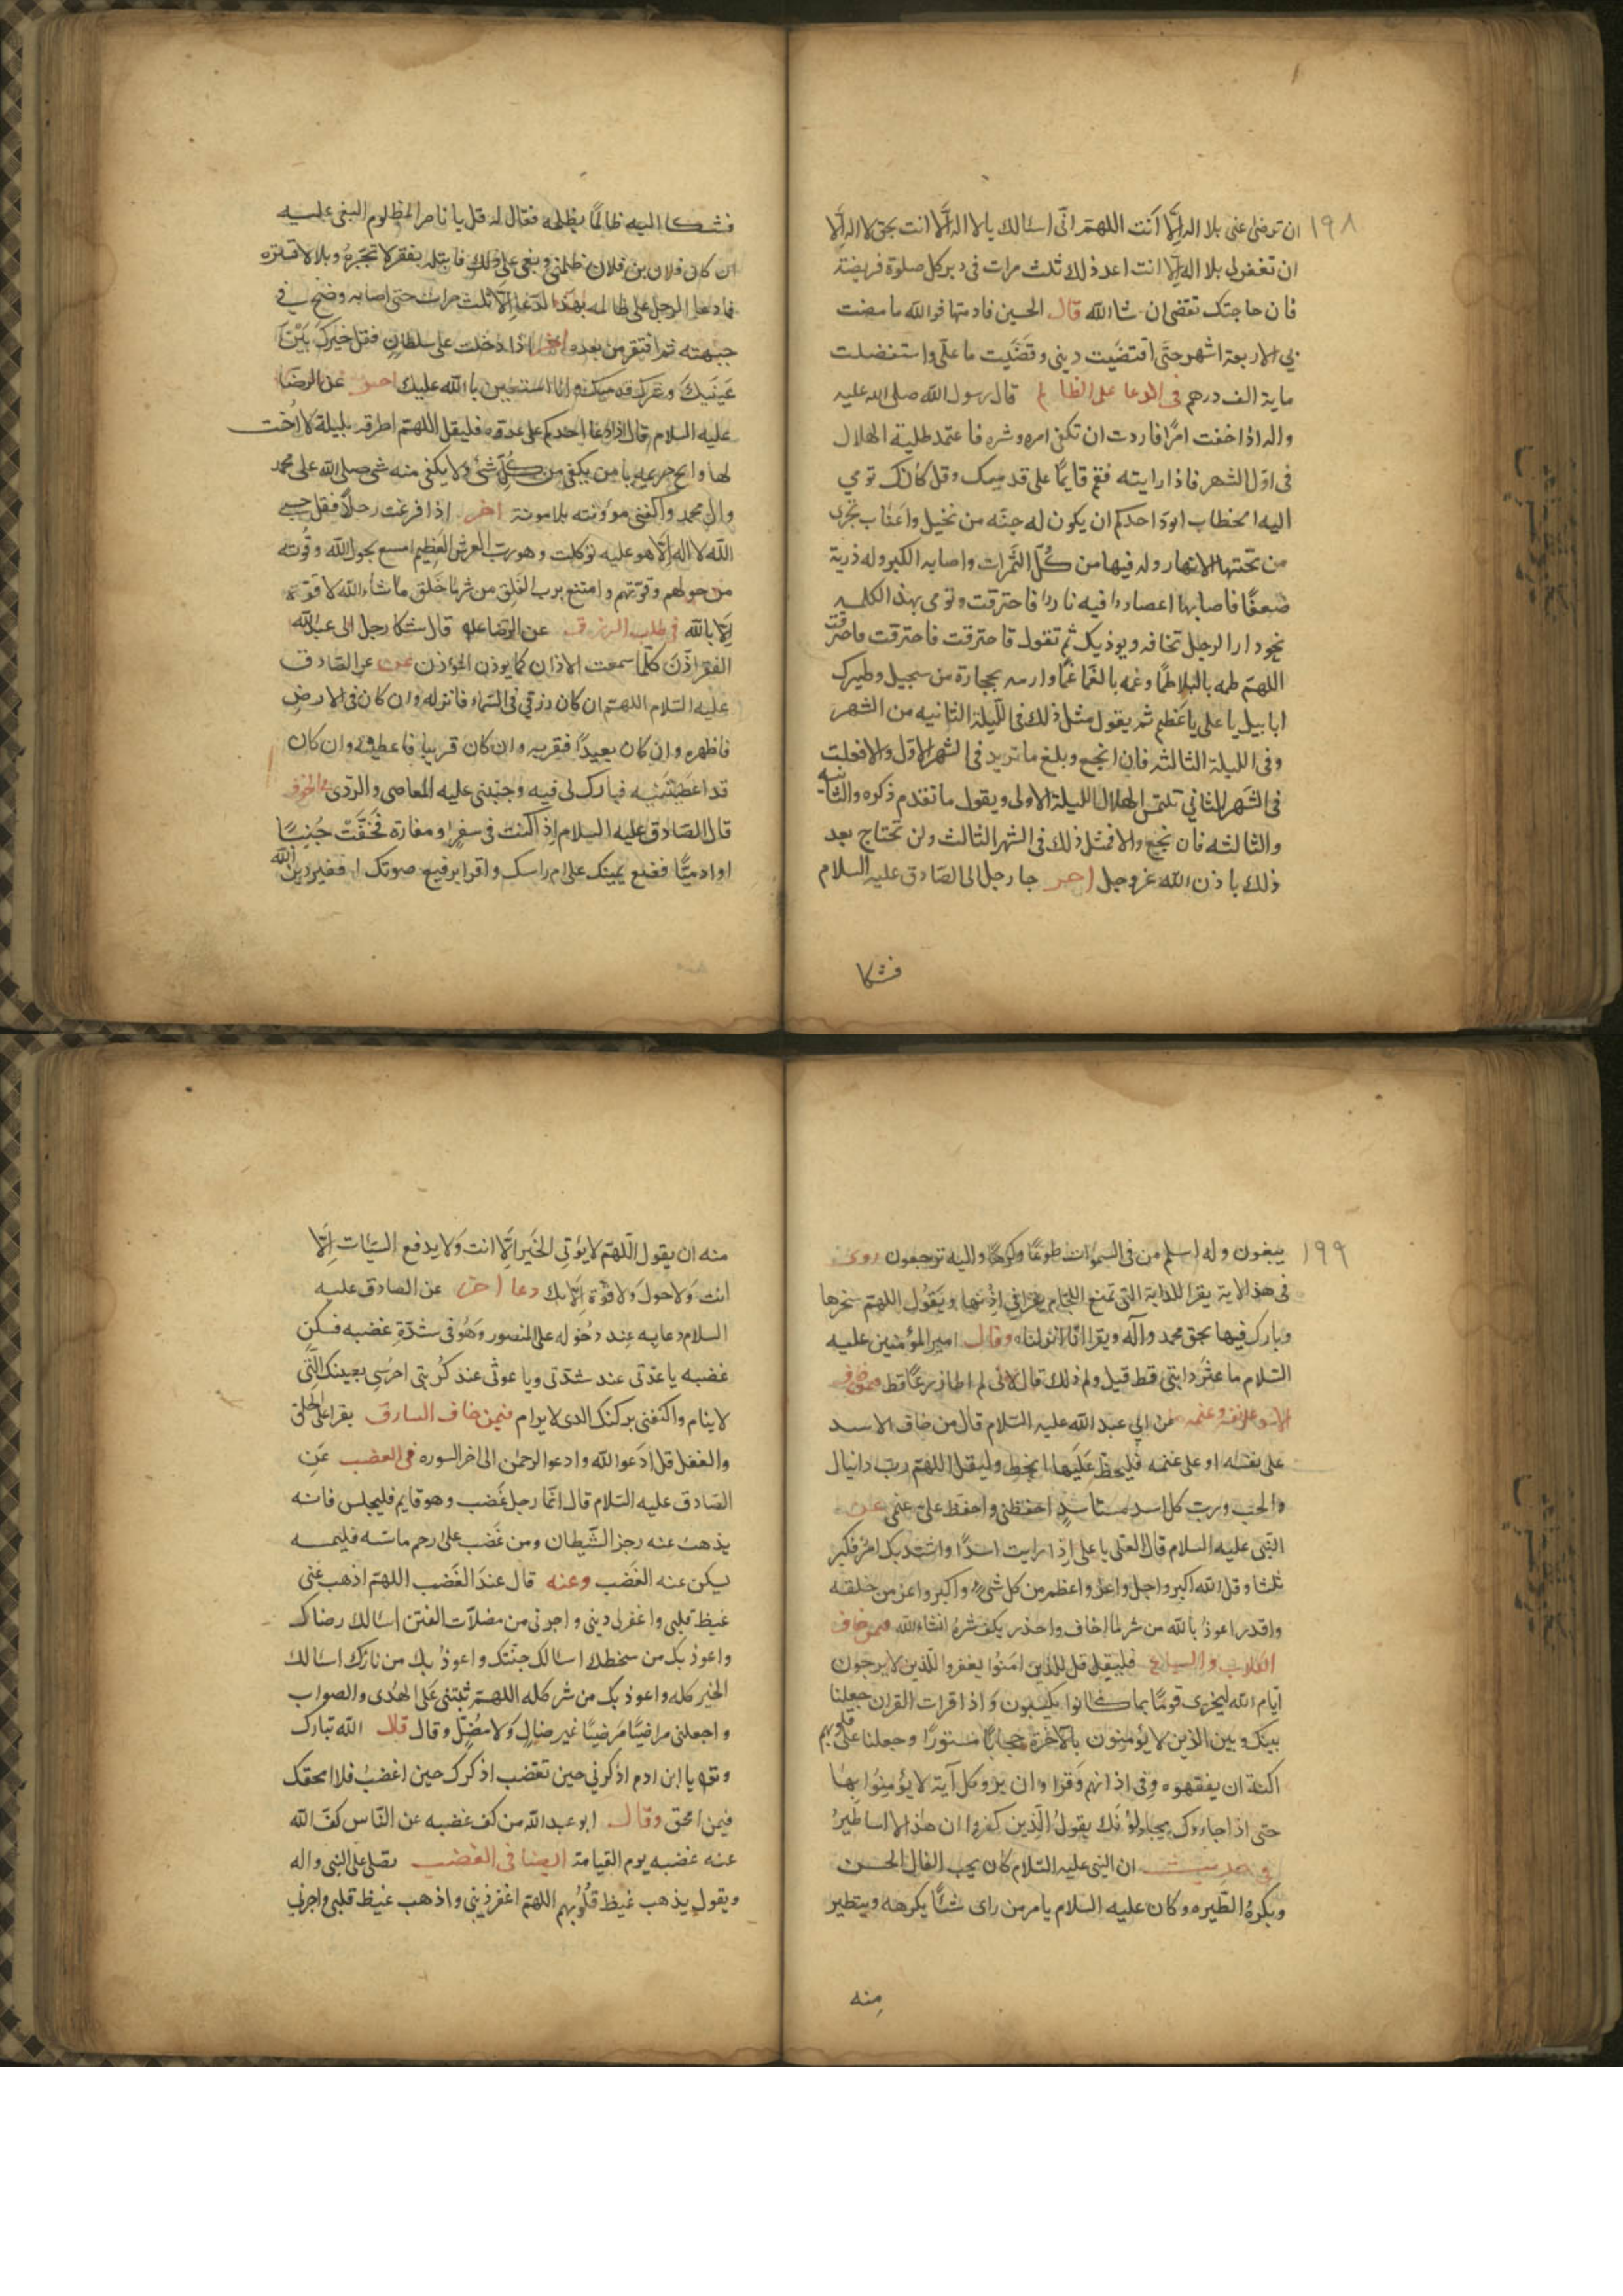 ١٩٨
ان ترضى عنى بلا اله الا انت اللهم انى اسالك يا لا اله الا انت بحق لا اله الا
ان تغفر لى بلا اله الا انت اعد ذلك ثلث مرات فى دبر كل صلوة فريضة
فان حاجتك تقضى ان شا الله قال الحسين فادمتها فوالله ما مضت
بى الا اربعة اشهر حتى اقتضيت دينى وقضيت ما على واستفضلت
ماية الف درهم فى الدعا على الظالم قال رسول الله صلى الله عليه
واله اذا خفت امرًا فاردت ان تكفى امره وشره فاعتمد طلبة الهلال
فى اول الشهر فاذا رايته فقم قايمًا على قدميك وقل كانك تومى
اليه الخطاب ايود احدكم ان يكون له جنة من نخيل واعناب تجرى
من تحتها الانهار وله فيها من كل الثمرات واصابه الكبر وله ذرية
ضعفا فاصابها اعصار فيه نار فاحترقت وتومى بهذا الكلمه
نحو دار الرجل تخافه ويوذيك ثم تقول فاحترقت فاحترقت فاحترقت
اللهم طمه بالبلا طمًا وغمه بالغما غمًا وارمه بحجارة من سجيل وطيرك
ابابيل يا على يا عظيم ثم يقول مثل ذلك فى الليلة الثانيه من الشهر
وفى الليلة الثالثه فان انجع وبلغ ما تريد فى الشهر الاول والا فعلت
فى الشهر الثانى تلتمس الهلال الليلة الاولى ويقول ما تقدم ذكره والثانيه
والثالثه فان نجع والا فمثل ذلك فى الشهر الثالث ولن تحتاج بعد
ذلك باذن الله عز وجل اخر جا رجل الى الصادق عليه السلام
فشكا
فشكا اليه ظالمًا يظلمه فقال له قل يا ناصر المظلوم البغى عليه
ان كان فلان بن فلان ظلمنى وبغى على ذلك فابتله بفقر لا تجبره وبلا لا تستره
فما دعا الرجل على ظالمه بهذا الدعا الا ثلث مرات حتى اصابه وضح فى
جبهته ثم افتقر من بعده اخر اذا دخلت على سلطان فقل خيرك بين
عينيك وشرك قدميك وانا استعين بالله عليك اخر عن الرضا
عليه السلام قال اذا دعا احدكم على عدوه فليقل اللهم اطرقه بليلة لا اخت
لها وابح حريمه يا من يكفى من كل شئ ولا يكفى منه شى صل الله على محمد
وال محمد واكفنى مؤونته بلا مونة اخر اذا فزعت رجلا فقل حسبى
الله لا اله الا هو عليه توكلت وهو رب العرش العظيم امتنع بحول الله وقوته
من حولهم وقوتهم وامتنع برب الفلق من شر ما خلق ما شاء الله لا قوة
الا بالله فى طلب الرزق عن الرضا قال شكا رجل الى عبدالله
الفقر اذن كلما سمعت الاذان كما يوذن الموذن عن الصادق
عليه السلام اللهم ان كان رزقى فى السماء فانزله وان كان فى الارض
فاظهره وان كان بعيدًا فقربه وان كان قريبا فاعطنيه وان كان
قد اعطيتنيه فبارك لى فيه وجنبنى عليه المعاصى والردى
قال الصادق عليه السلام اذا كنت فى سفر او مفازة فخفت جنيًا
او ادميًا فضع يمينك على ام راسك واقرا برفيع صوتك افغير دين الله
١٩٩
يبغون وله اسلم من فى السموات طوعًا وكرهًا واليه ترجعون روى
فى هذا الاية يقرا للدابة التى تمنع اللجام يقرا فى اذنها ويقول اللهم سخرها
وبارك فيها بحق محمد وآله ويقرا انا انزلناه وقال امير المؤمنين عليه
السلام ما عثرت دابتى قط قيل ولم ذلك قال لانى لم اطا زرعًا قط
عن ابى عبد الله عليه السلام قال من خاف الاسد
على نفسه او على غنمه فليخط عليها بخط وليقل اللهم رب دانيال
والجب ورب كل اسد مستاسد احفظنى واحفظ على غنمى عن
النبى عليه السلام قال لعلى يا على اذا رايت اسدًا واشتد بك امر فكبر
ثلثا وقل الله اكبر واجل واعز واعظم من كل شئ واكبر واعز من خلقه
واقدر اعوذ بالله من شر ما اخاف واحذر يكف شره انشاءالله فيمن خاف
الكلاب والسباع فليقل قل للذين امنوا يغفروا للذين لا يرجون
ايام الله ليجزى قومًا بما كانوا يكسبون واذا قرات القران جعلنا
بينك وبين الذين لا يؤمنون بالاخرة حجابًا مستورًا وجعلنا على قلوبهم
اكنة ان يفقهوه وفى اذانهم وقرا وان يروا كل آية لا يؤمنوا بها
حتى اذا جاءوك يجادلونك يقول الذين كفروا ان هذا الا اساطير
فى حديث ان النبى عليه السلام كان يحب الفال الحسن
ويكره الطيره وكان عليه السلام يامر من راى شئًا يكرهه ويتطير
منه
منه ان يقول اللهم لا يؤتى الخير الا انت ولا يدفع السيئات الا
انت ولا حول ولا قوة الا بك دعا اخر عن الصادق عليه
السلام دعا به عند دخوله على المنصور وهو فى شدة غضبه فسكن
غضبه يا عدتى عند شدتى ويا غوثى عند كربتى احرسنى بعينك التى
لا ينام واكنفنى بركنك الذى لا يرام فيمن خاف السارق يقرا على الحلق
والقفل قل ادعوا الله وادعوا الرحمن الى اخر السوره فى الغضب عن
الصادق عليه السلام قال انما رجل غضب وهو قايم فليجلس فانه
يذهب عنه رجز الشيطان ومن غضب على رحم ماسه فليمسه
يسكن عنه الغضب وعنه قال عند الغضب اللهم اذهب عنى
غيظ قلبى واغفر لى دينى واجرنى من مضلات الفتن اسالك رضاك
واعوذ بك من سخطك اسالك جنتك واعوذ بك من نارك اسالك
الخير كله واعوذ بك من شر كله اللهم ثبتنى على الهدى والصواب
واجعلنى راضيًا مرضيًا غير ضال ولا مضل وقال قال الله تبارك
وتعالى يا ابن ادم اذكرنى حين تغضب اذكرك حين اغضب فلا امحقك
فيمن امحق وقال ابو عبدالله من كف غضبه عن الناس كف الله
عنه غضبه يوم القيامة ايضا فى الغضب تصلى على النبى واله
ويقول يذهب غيظ قلوبهم اللهم اغفر ذنبى واذهب غيظ قلبى واجرنى